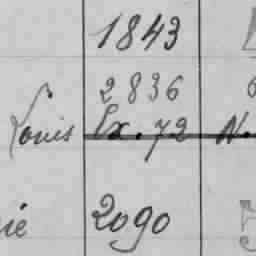 1843
2836
Louis Ex. 72 N.
ie 2090